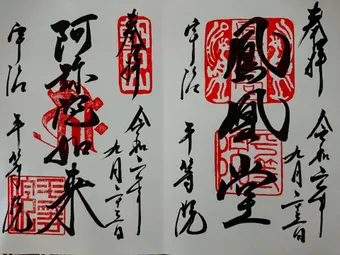 奉拝
鳳凰堂
令和六年
九月二十三日
宇治
平等院
奉拝
阿弥陀如来
令和六年
九月二十三日
宇治
平等院